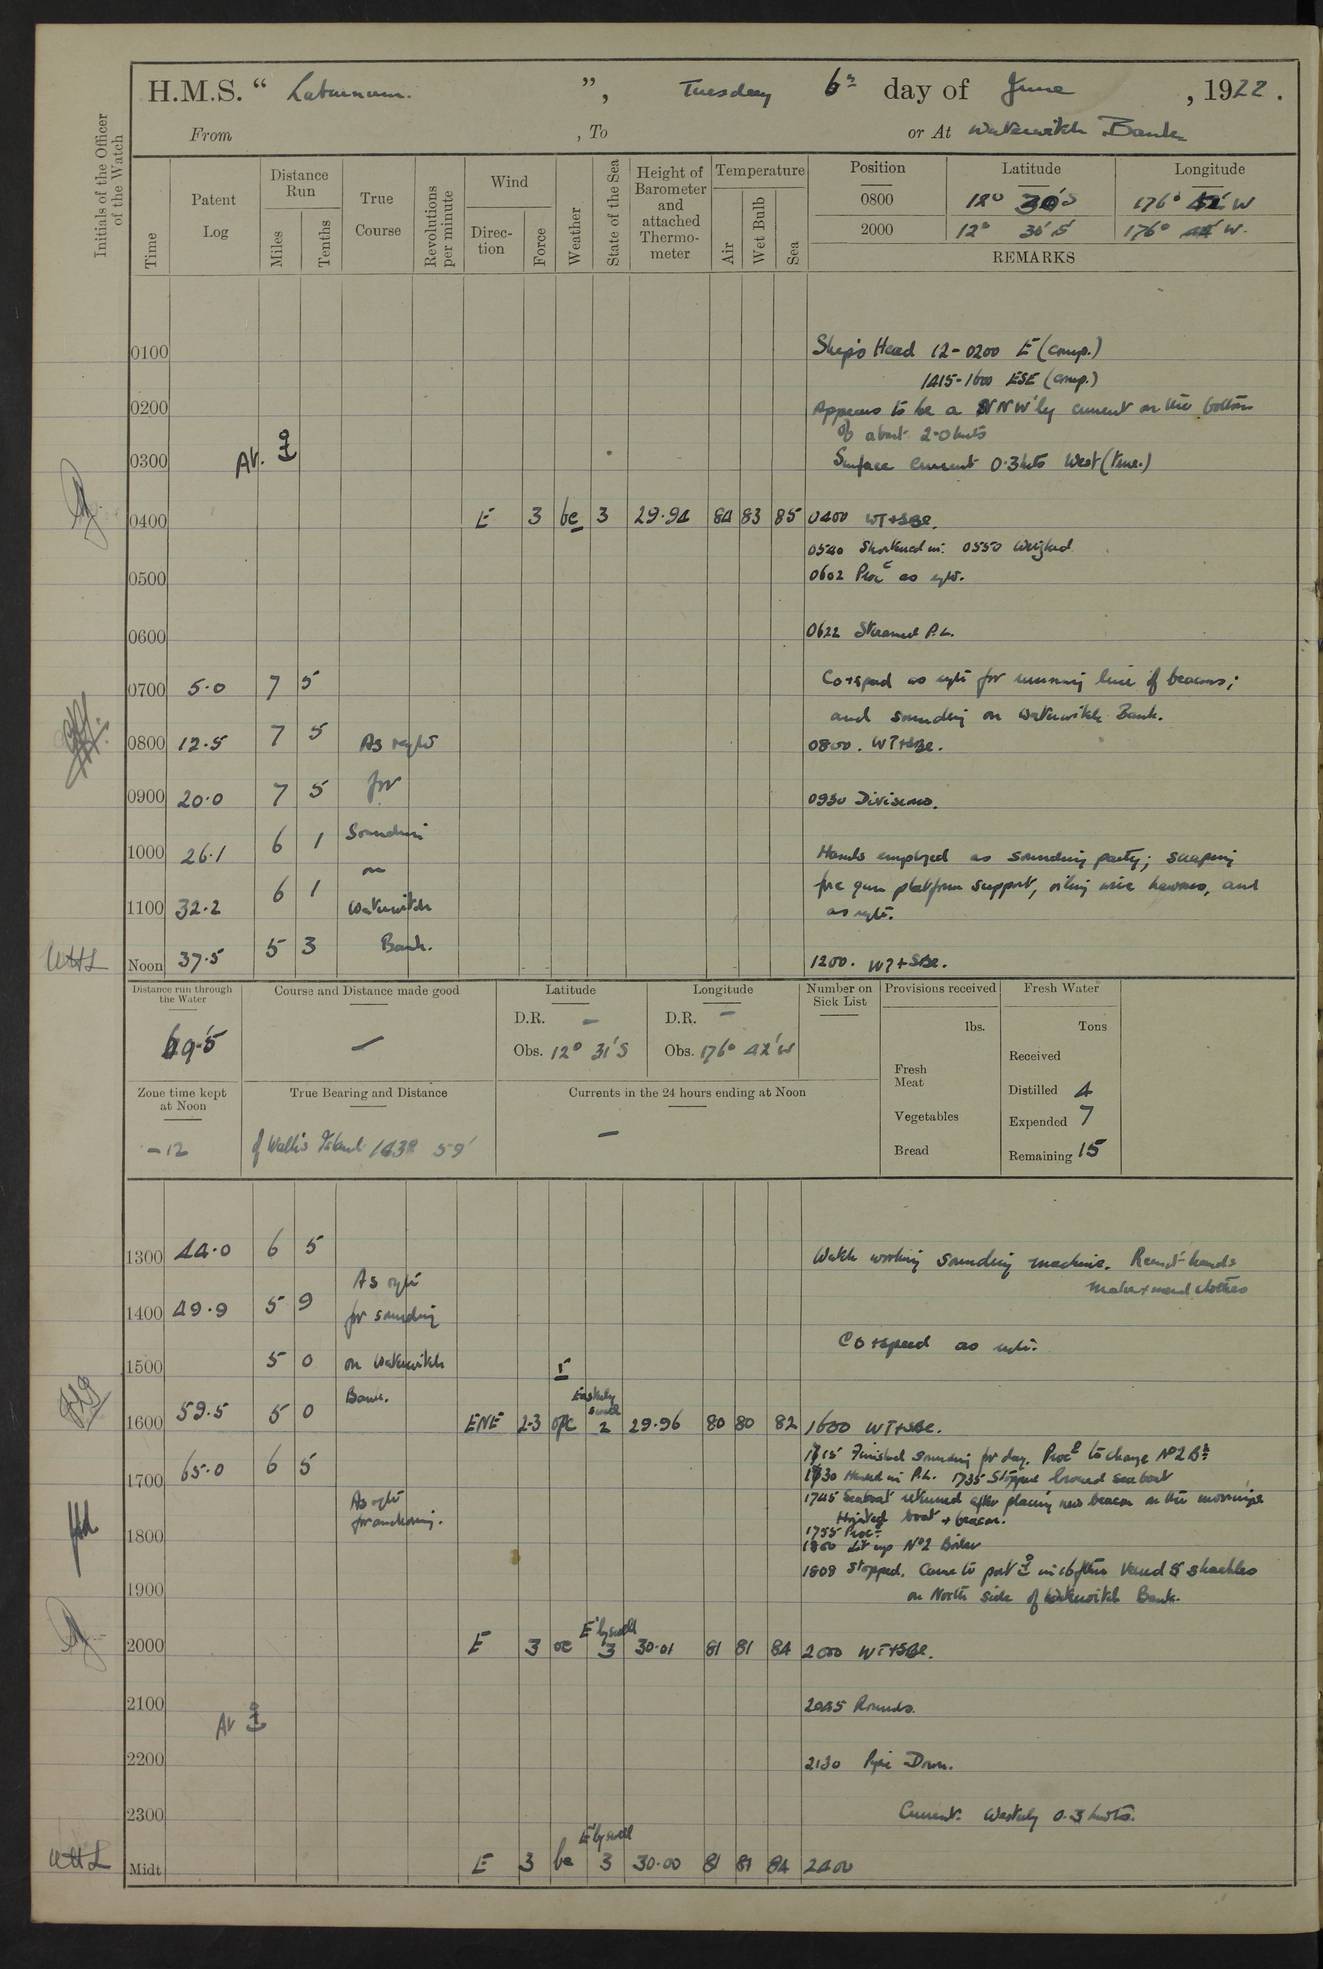 H.M.S. “ Laburnum. ”, Tuesday 6th day of June , 1922.
From , To or At Waterwitch Bank
Initials of the Officer of the Watch
Time
Patent Log
Distance Run
Miles
Tenths
True Course
Revolutions per minute
Wind
Direc- tion
Force
Weather
State of the Sea
Height of Barometer and attached Thermo- meter
Temperature
Air
Wet Bulb
Sea
Position Latitude Longitude
0800 12° 30' S 176° 42' W
2000 12° 30' S 176° 44' W.
REMARKS
0100 Ship's Head 12-0200 E (comp.)
1415-1600 ESE (comp.)
0200 Appears to be a NNW'ly current on the bottom
of about 2.0 knts
0300 At. Surface current 0.3 knts West (true.)
0400 E 3 bc 3 29.94 84 83 85 0400 WT+SBe.
0540 Shortened in. 0550 Weighed
0500 0602 Proc as reqte.
0600 0622 Streamed P.L.
0700 5.0 7 5 Co+speed as reqte for running line of beacons;
and sounding on Waterwitch Bank.
0800 12.5 7 5 As reqte 0800. WT+SBe.
0900 20.0 7 5 for 0930 Divisions.
1000 26.1 6 1 Sounding Hands employed as sounding party; scraping
on fore gun platform support, oiling wire hawsers, and
1100 32.2 6 1 Waterwitch as reqte.
Noon 37.5 5 3 Bank. 1200. WT+SBe.
Distance run through the Water
69.5
Course and Distance made good
—
Latitude
D.R. —
Obs. 12° 31' S
Longitude
D.R. —
Obs. 176° 42' W
Number on Sick List
Provisions received
lbs.
Fresh Meat
Vegetables
Bread
Fresh Water
Tons
Received
Distilled 4
Expended 7
Remaining 15
Zone time kept at Noon
-12
True Bearing and Distance
of Wallis Island 143° 59'
Currents in the 24 hours ending at Noon
—
1300 44.0 6 5 Watch working sounding machine. Remdr hands
As reqte make+mend clothes
1400 49.9 5 9 for sounding
Co+speed as reqte.
1500 5 0 on Waterwitch r
Bank. Easterly swell
1600 59.5 5 0 ENE 2-3 opc 2 29.96 80 80 82 1600 WT+SBe.
1715 Finished sounding for day. Proc to change No 2 Bn
1700 65.0 6 5 1730 Hauled in P.L. 1735 Stopped lowered seaboat
As reqte 1745 Seaboat returned after placing new beacon on the moorings
for anchoring. Hoisted boat + beacon.
1755 Proc
1800 1800 Lit up No 2 Boiler
1808 Stopped. Came to port in 16 fthms Veered 5 shackles
1900 on North side of Waterwitch Bank.
E'ly swell
2000 E 3 oc 3 30.01 81 81 84 2000 WT+SBe.
2100 2045 Rounds.
At
2200 2130 Pipe Down.
2300 Current: Westerly 0.3 knots.
E'ly swell
Midt E 3 bc 3 30.00 81 81 84 2400